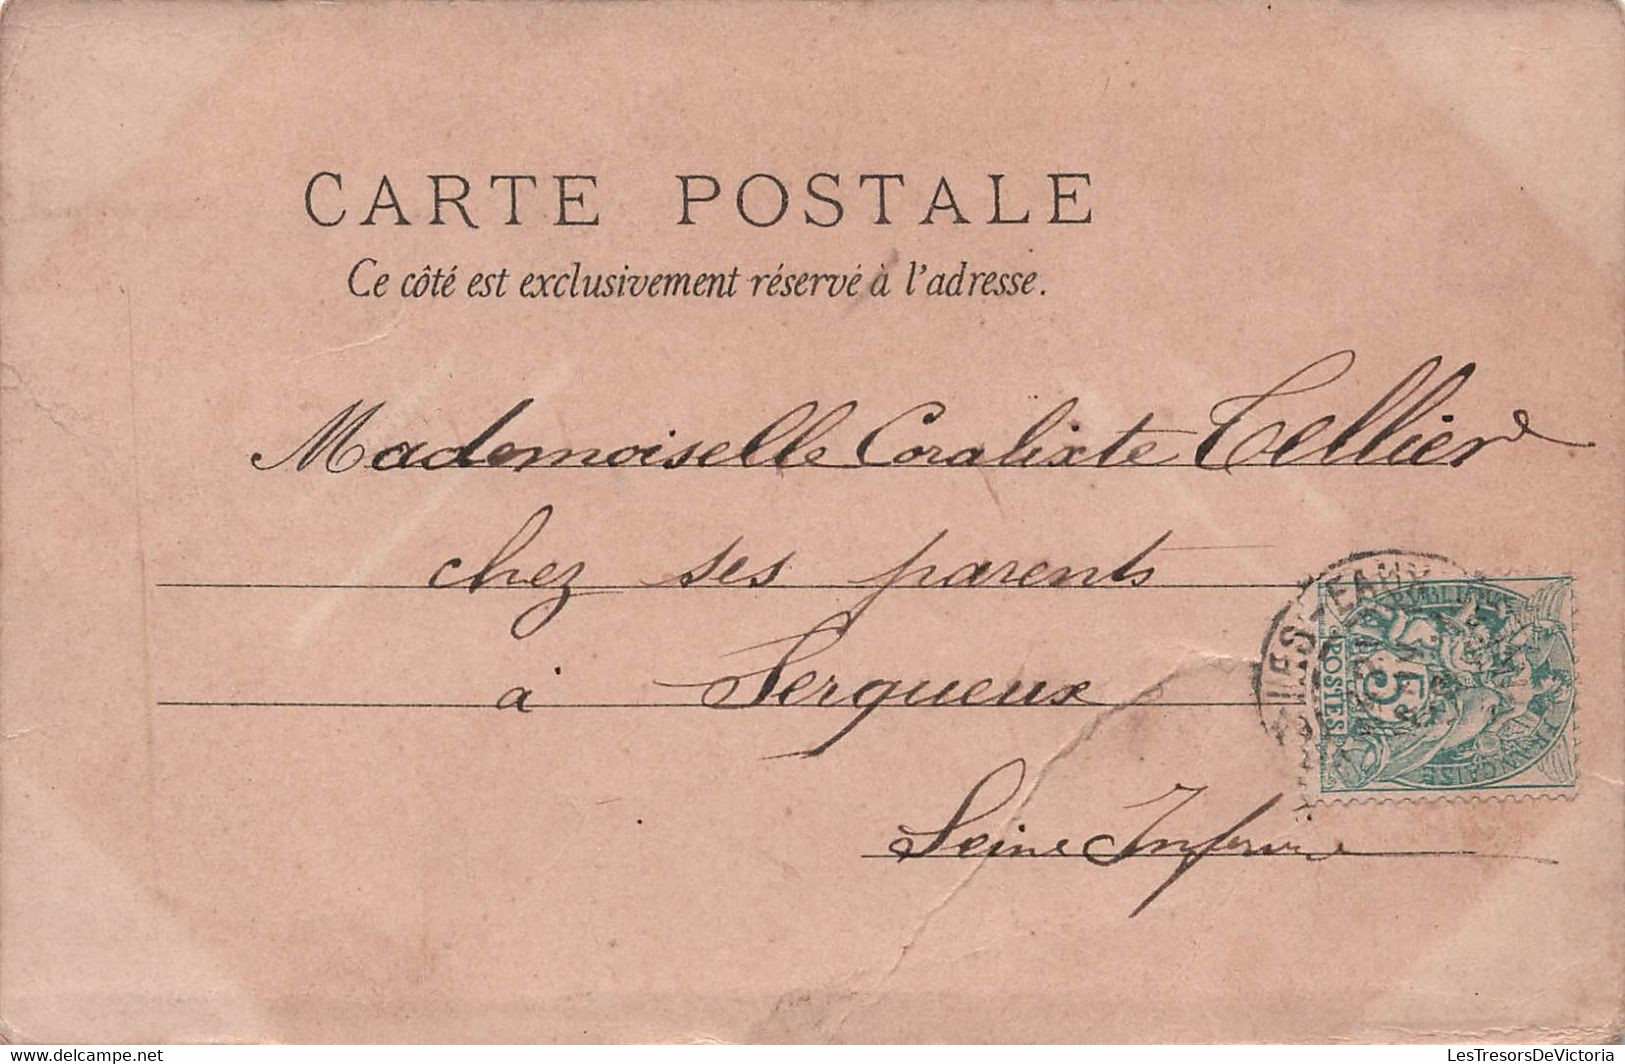 CARTE POSTALE
Ce côté est exclusivement réservé à l'adresse.
Mademoiselle Coralixte Tellier
chez ses parents
à Serqueux
Seine Inférieure
UES-EAUX
5
POSTES
FRANÇAISE
LesTresorsDeVictoria